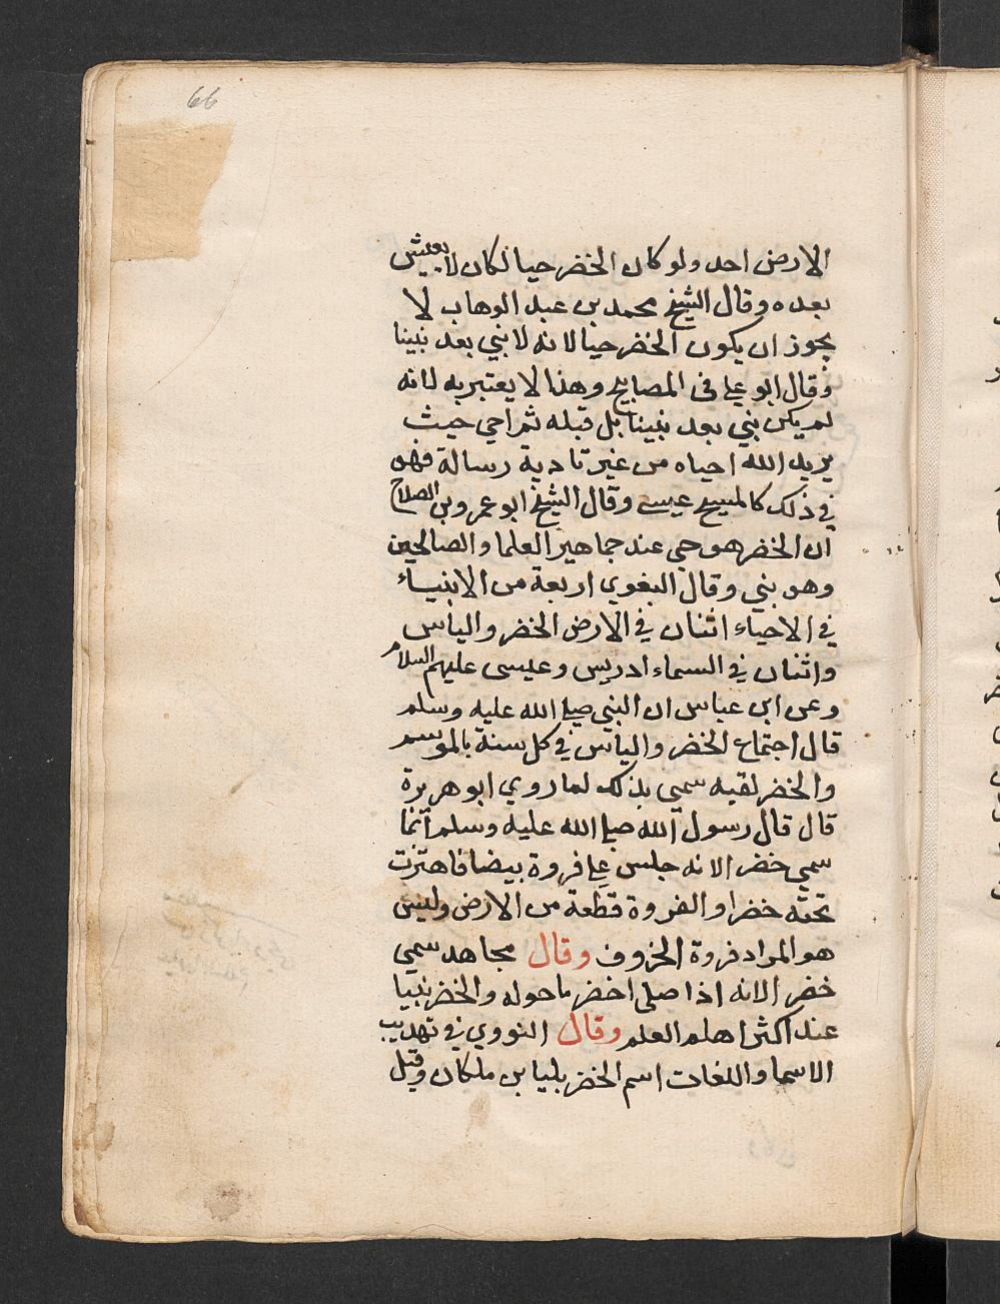 66
الارض احد ولو كان الخضر حيا لكان لا يعيش
بعده وقال الشيخ محمد بن عبد الوهاب لا
يجوز ان يكون الخضر حيا لانه لا نبي بعد نبينا
وقال ابو علي في المصابيح وهذا لا يعتبر به لانه
لم يكن نبي بعد نبينا بل قبله ثم احي حيث
يريد الله احياه من غير تادية رسالة فهو
في ذلك كالمسيح عيسى وقال الشيخ ابو عمرو بن الصلاح
ان الخضر هو حي عند جماهير العلما والصالحين
وهو نبي وقال البغوي اربعة من الانبياء
في الاحياء اثنان في الارض الخضر والياس
واثنان في السماء ادريس وعيسى عليهم السلام
وعن ابن عباس ان النبي صلى الله عليه وسلم
قال اجتماع الخضر والياس في كل سنة بالموسم
والخضر لقبه سمي بذلك لما روي ابو هريرة
قال قال رسول الله صلى الله عليه وسلم انما
سمي خضرا لانه جلس على فروة بيضا فاهتزت
تحته خضرا والفروة قطعة من الارض وليس
هو المراد فروة الخروف وقال مجاهد سمي
خضرا لانه اذا صلى اخضر ما حوله والخضر نبيا
عند اكثر اهلم العلم وقال النووي في تهديب
الاسما واللغات اسم الخضر بليا بن ملكان وقيل